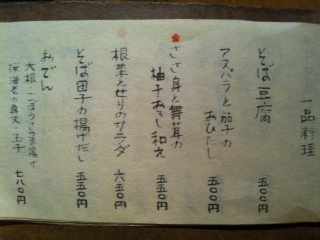 一品料理
そば豆腐 五〇〇円
アスパラと茄子の
おひたし 五〇〇円
ささ身と舞茸の
柚子おろし和え 五五〇円
根菜とせりのサラダ 六五〇円
そば団子の揚げだし 五五〇円
おでん
大根・ごぼう
玉子 七八〇円